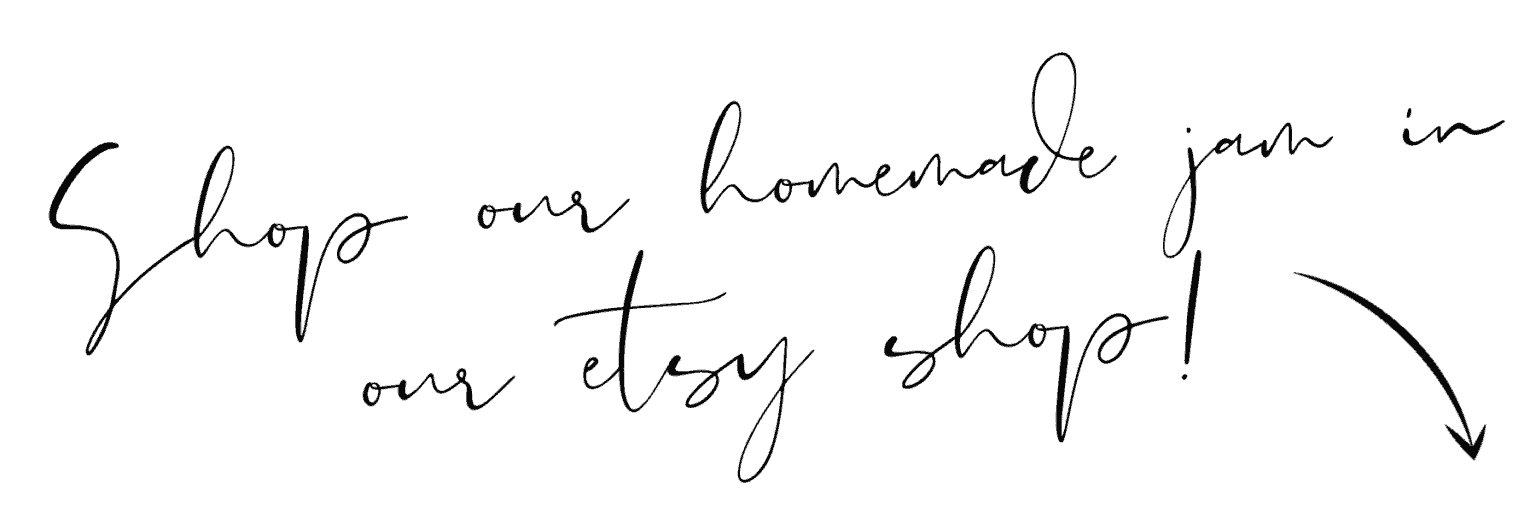 Shop our homemade jam in
our etsy shop!